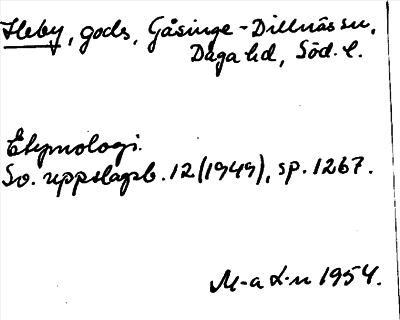 Heby, gods, Gåsinge-Dillnäs sn,
Daga hd, Söd. l.
Etymologi.
Sv. uppslagsb. 12 (1949), sp. 1267.
M-a L-n 1954.